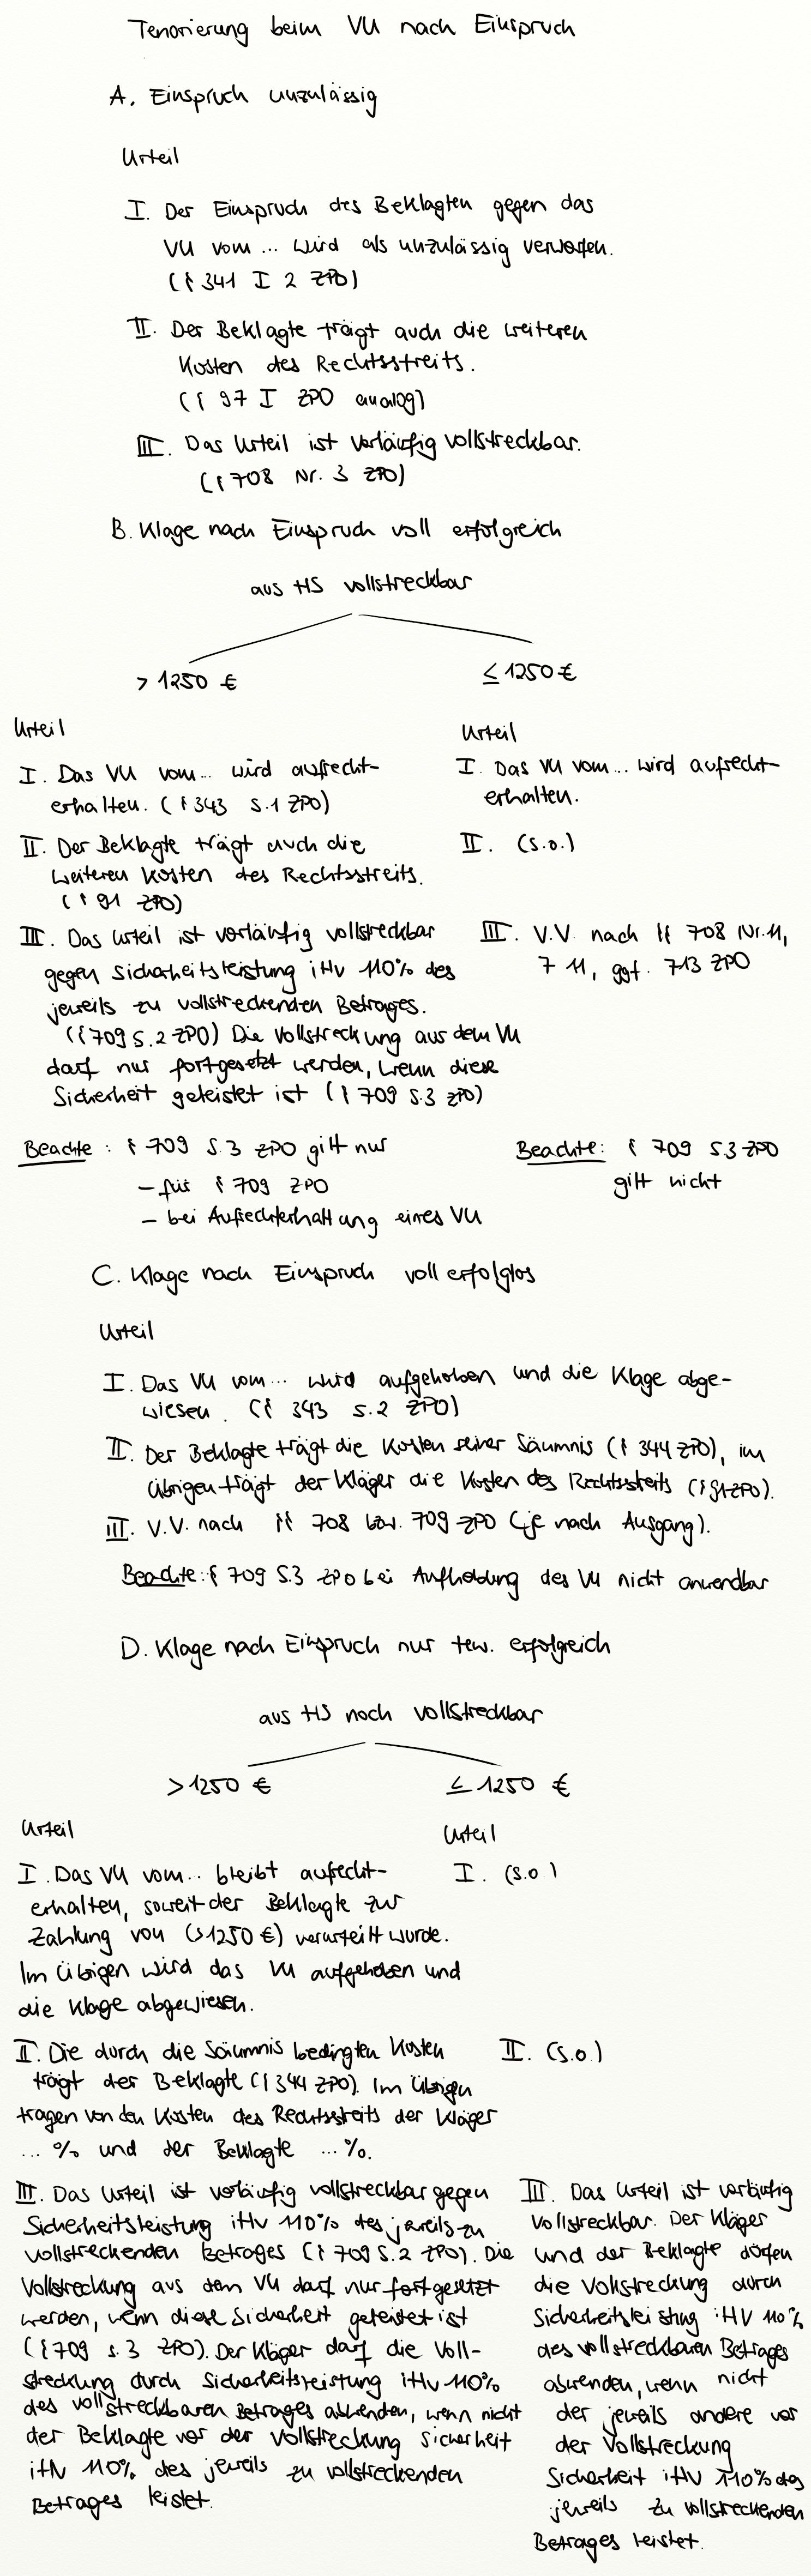 Tenorierung beim VU nach Einspruch
A. Einspruch unzulässig
Urteil
I. Der Einspruch des Beklagten gegen das
VU vom ... wird als unzulässig verworfen.
(§ 341 I 2 ZPO)
II. Der Beklagte trägt auch die weiteren
Kosten des Rechtsstreits.
(§ 97 I ZPO analog)
III. Das Urteil ist vorläufig vollstreckbar.
(§ 708 Nr. 3 ZPO)
B. Klage nach Einspruch voll erfolgreich
aus HS vollstreckbar
> 1250 €
≤ 1250 €
Urteil
I. Das VU vom ... wird aufrecht-
erhalten. (§ 343 S.1 ZPO)
II. Der Beklagte trägt auch die
weiteren Kosten des Rechtsstreits.
(§ 91 ZPO)
III. Das Urteil ist vorläufig vollstreckbar
gegen Sicherheitsleistung iHv 110% des
jeweils zu vollstreckenden Betrages.
(§ 709 S.2 ZPO) Die Vollstreckung aus dem VU
darf nur fortgesetzt werden, wenn diese
Sicherheit geleistet ist (§ 709 S.3 ZPO)
Beachte: § 709 S.3 ZPO gilt nur
- für § 709 ZPO
- bei Aufrechterhaltung eines VU
Urteil
I. Das VU vom ... wird aufrecht-
erhalten.
II. (s.o.)
III. V.V. nach §§ 708 Nr. 11,
711, ggf. 713 ZPO
Beachte: § 709 S.3 ZPO
gilt nicht
C. Klage nach Einspruch voll erfolglos
Urteil
I. Das VU vom ... wird aufgehoben und die Klage abge-
wiesen. (§ 343 S.2 ZPO)
II. Der Beklagte trägt die Kosten seiner Säumnis (§ 344 ZPO), im
Übrigen trägt der Kläger die Kosten des Rechtsstreits (§ 91 ZPO).
III. V.V. nach §§ 708 bzw. 709 ZPO (je nach Ausgang).
Beachte: § 709 S.3 ZPO bei Aufhebung des VU nicht anwendbar
D. Klage nach Einspruch nur tew. erfolgreich
aus HS noch vollstreckbar
> 1250 €
≤ 1250 €
Urteil
I. Das VU vom ... bleibt aufrecht-
erhalten, soweit der Beklagte zur
Zahlung von (>1250 €) verurteilt wurde.
Im Übrigen wird das VU aufgehoben und
die Klage abgewiesen.
II. Die durch die Säumnis bedingten Kosten
trägt der Beklagte (§ 344 ZPO). Im Übrigen
tragen von den Kosten des Rechtsstreits der Kläger
... % und der Beklagte ... %.
III. Das Urteil ist vorläufig vollstreckbar gegen
Sicherheitsleistung iHv 110% des jeweils zu
vollstreckenden Betrages (§ 709 S.2 ZPO). Die
Vollstreckung aus dem VU darf nur fortgesetzt
werden, wenn diese Sicherheit geleistet ist
(§ 709 S. 3 ZPO). Der Kläger darf die Voll-
streckung durch Sicherheitsleistung iHv 110%
des vollstreckbaren Betrages abwenden, wenn nicht
der Beklagte vor der Vollstreckung Sicherheit
iHv 110% des jeweils zu vollstreckenden
Betrages leistet.
Urteil
I. (s.o)
II. (s.o)
III. Das Urteil ist vorläufig
vollstreckbar. Der Kläger
und der Beklagte dürfen
die Vollstreckung durch
Sicherheitsleistung iHv 110%
des vollstreckbaren Betrages
abwenden, wenn nicht
der jeweils andere vor
der Vollstreckung
Sicherheit iHv 110% des
jeweils zu vollstreckenden
Betrages leistet.